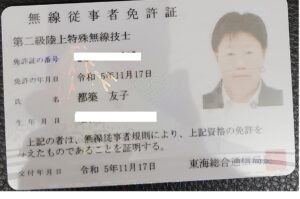 無線従事者免許証
第二級陸上特殊無線技士
免許証の番号
免許の年月日 令和 5年11月17日
氏名 都築 友子
生年月日
上記の者は、無線従事者規則により、上記資格の免許を
与えたものであることを証明する。
交付年月日 令和 5年11月17日 東海総合通信局長